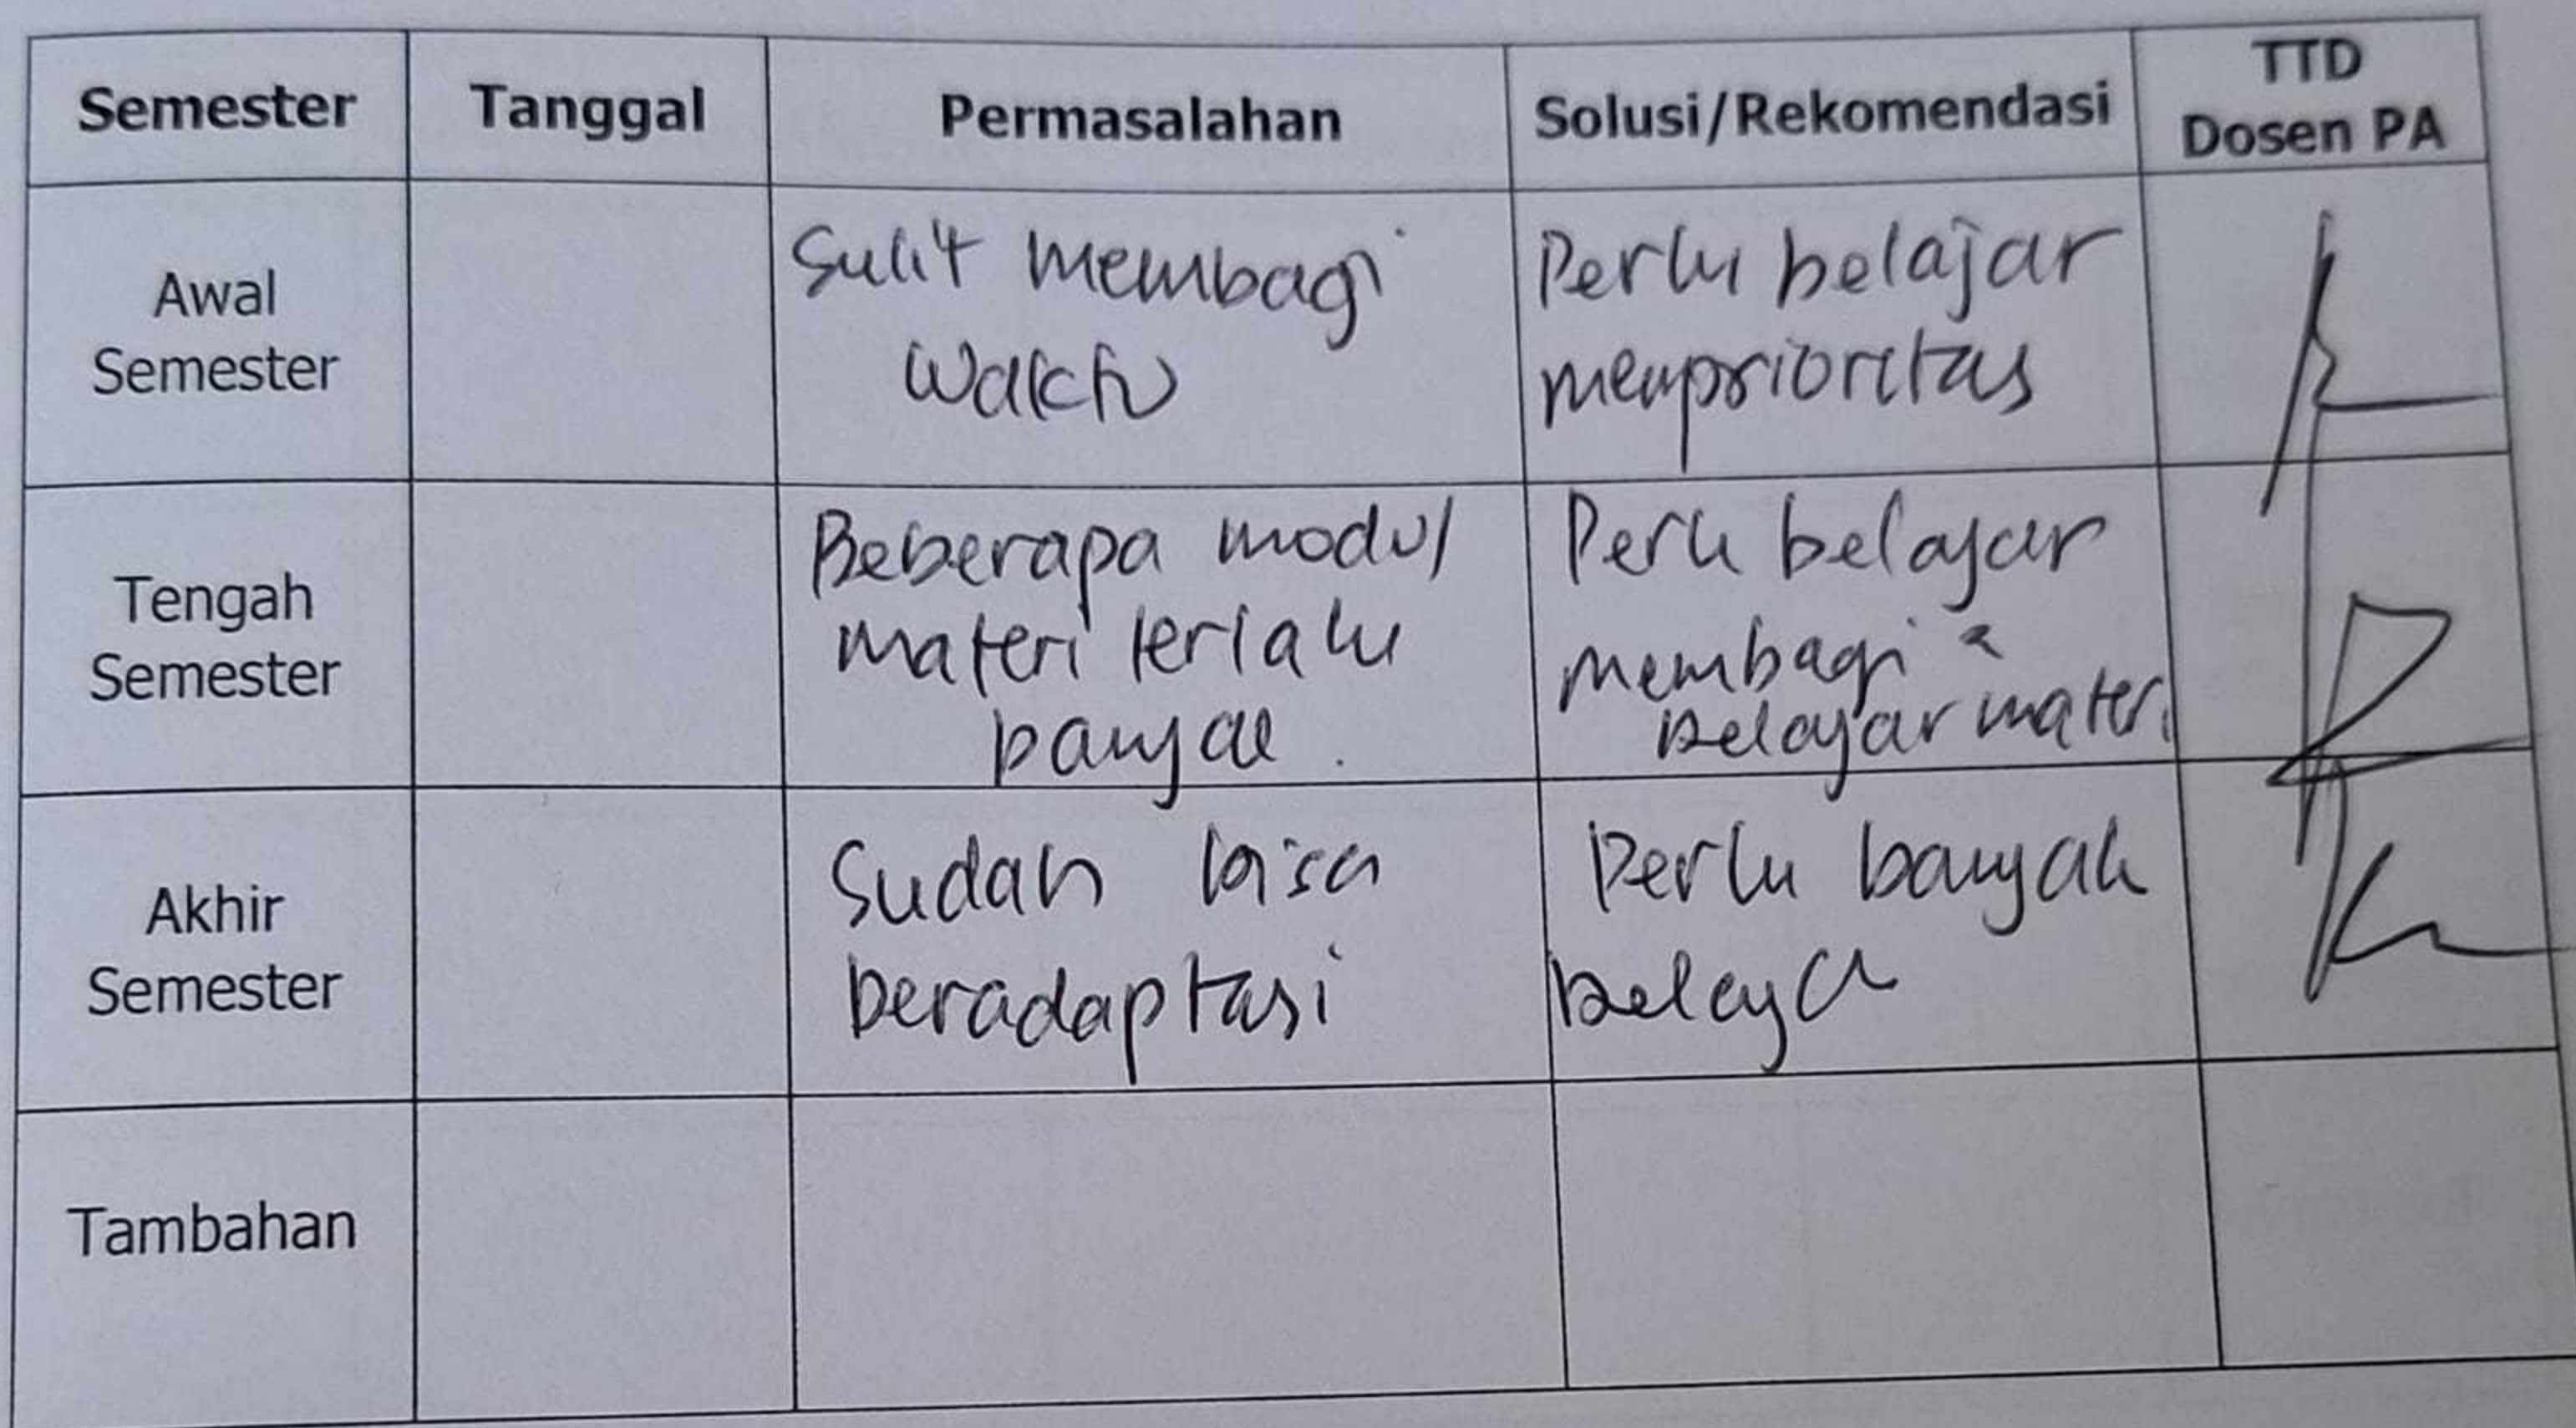 Semester Tanggal Permasalahan Solusi/Rekomendasi TTD
Dosen PA
Awal
Semester
Sulit membagi
waktu
Perlu belajar
memprioritas
Tengah
Semester
Beberapa modul
materi terlalu
banyak.
Perlu belajar
membagi
belajar materi
Akhir
Semester
Sudah bisa
beradaptasi
Perlu banyak
belajar
Tambahan